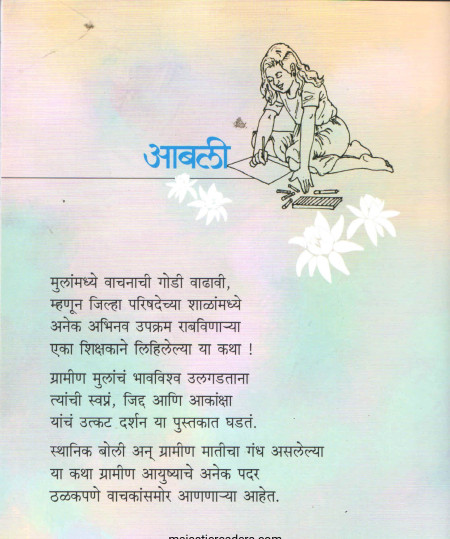 आबली
मुलांमध्ये वाचनाची गोडी वाढावी,
म्हणून जिल्हा परिषदेच्या शाळांमध्ये
अनेक अभिनव उपक्रम राबविणाऱ्या
एका शिक्षकाने लिहिलेल्या या कथा !
ग्रामीण मुलांचं भावविश्व उलगडताना
त्यांची स्वप्नं, जिद्द आणि आकांक्षा
यांचं उत्कट दर्शन या पुस्तकात घडतं.
स्थानिक बोली अन् ग्रामीण मातीचा गंध असलेल्या
या कथा ग्रामीण आयुष्याचे अनेक पदर
ठळकपणे वाचकांसमोर आणणाऱ्या आहेत.